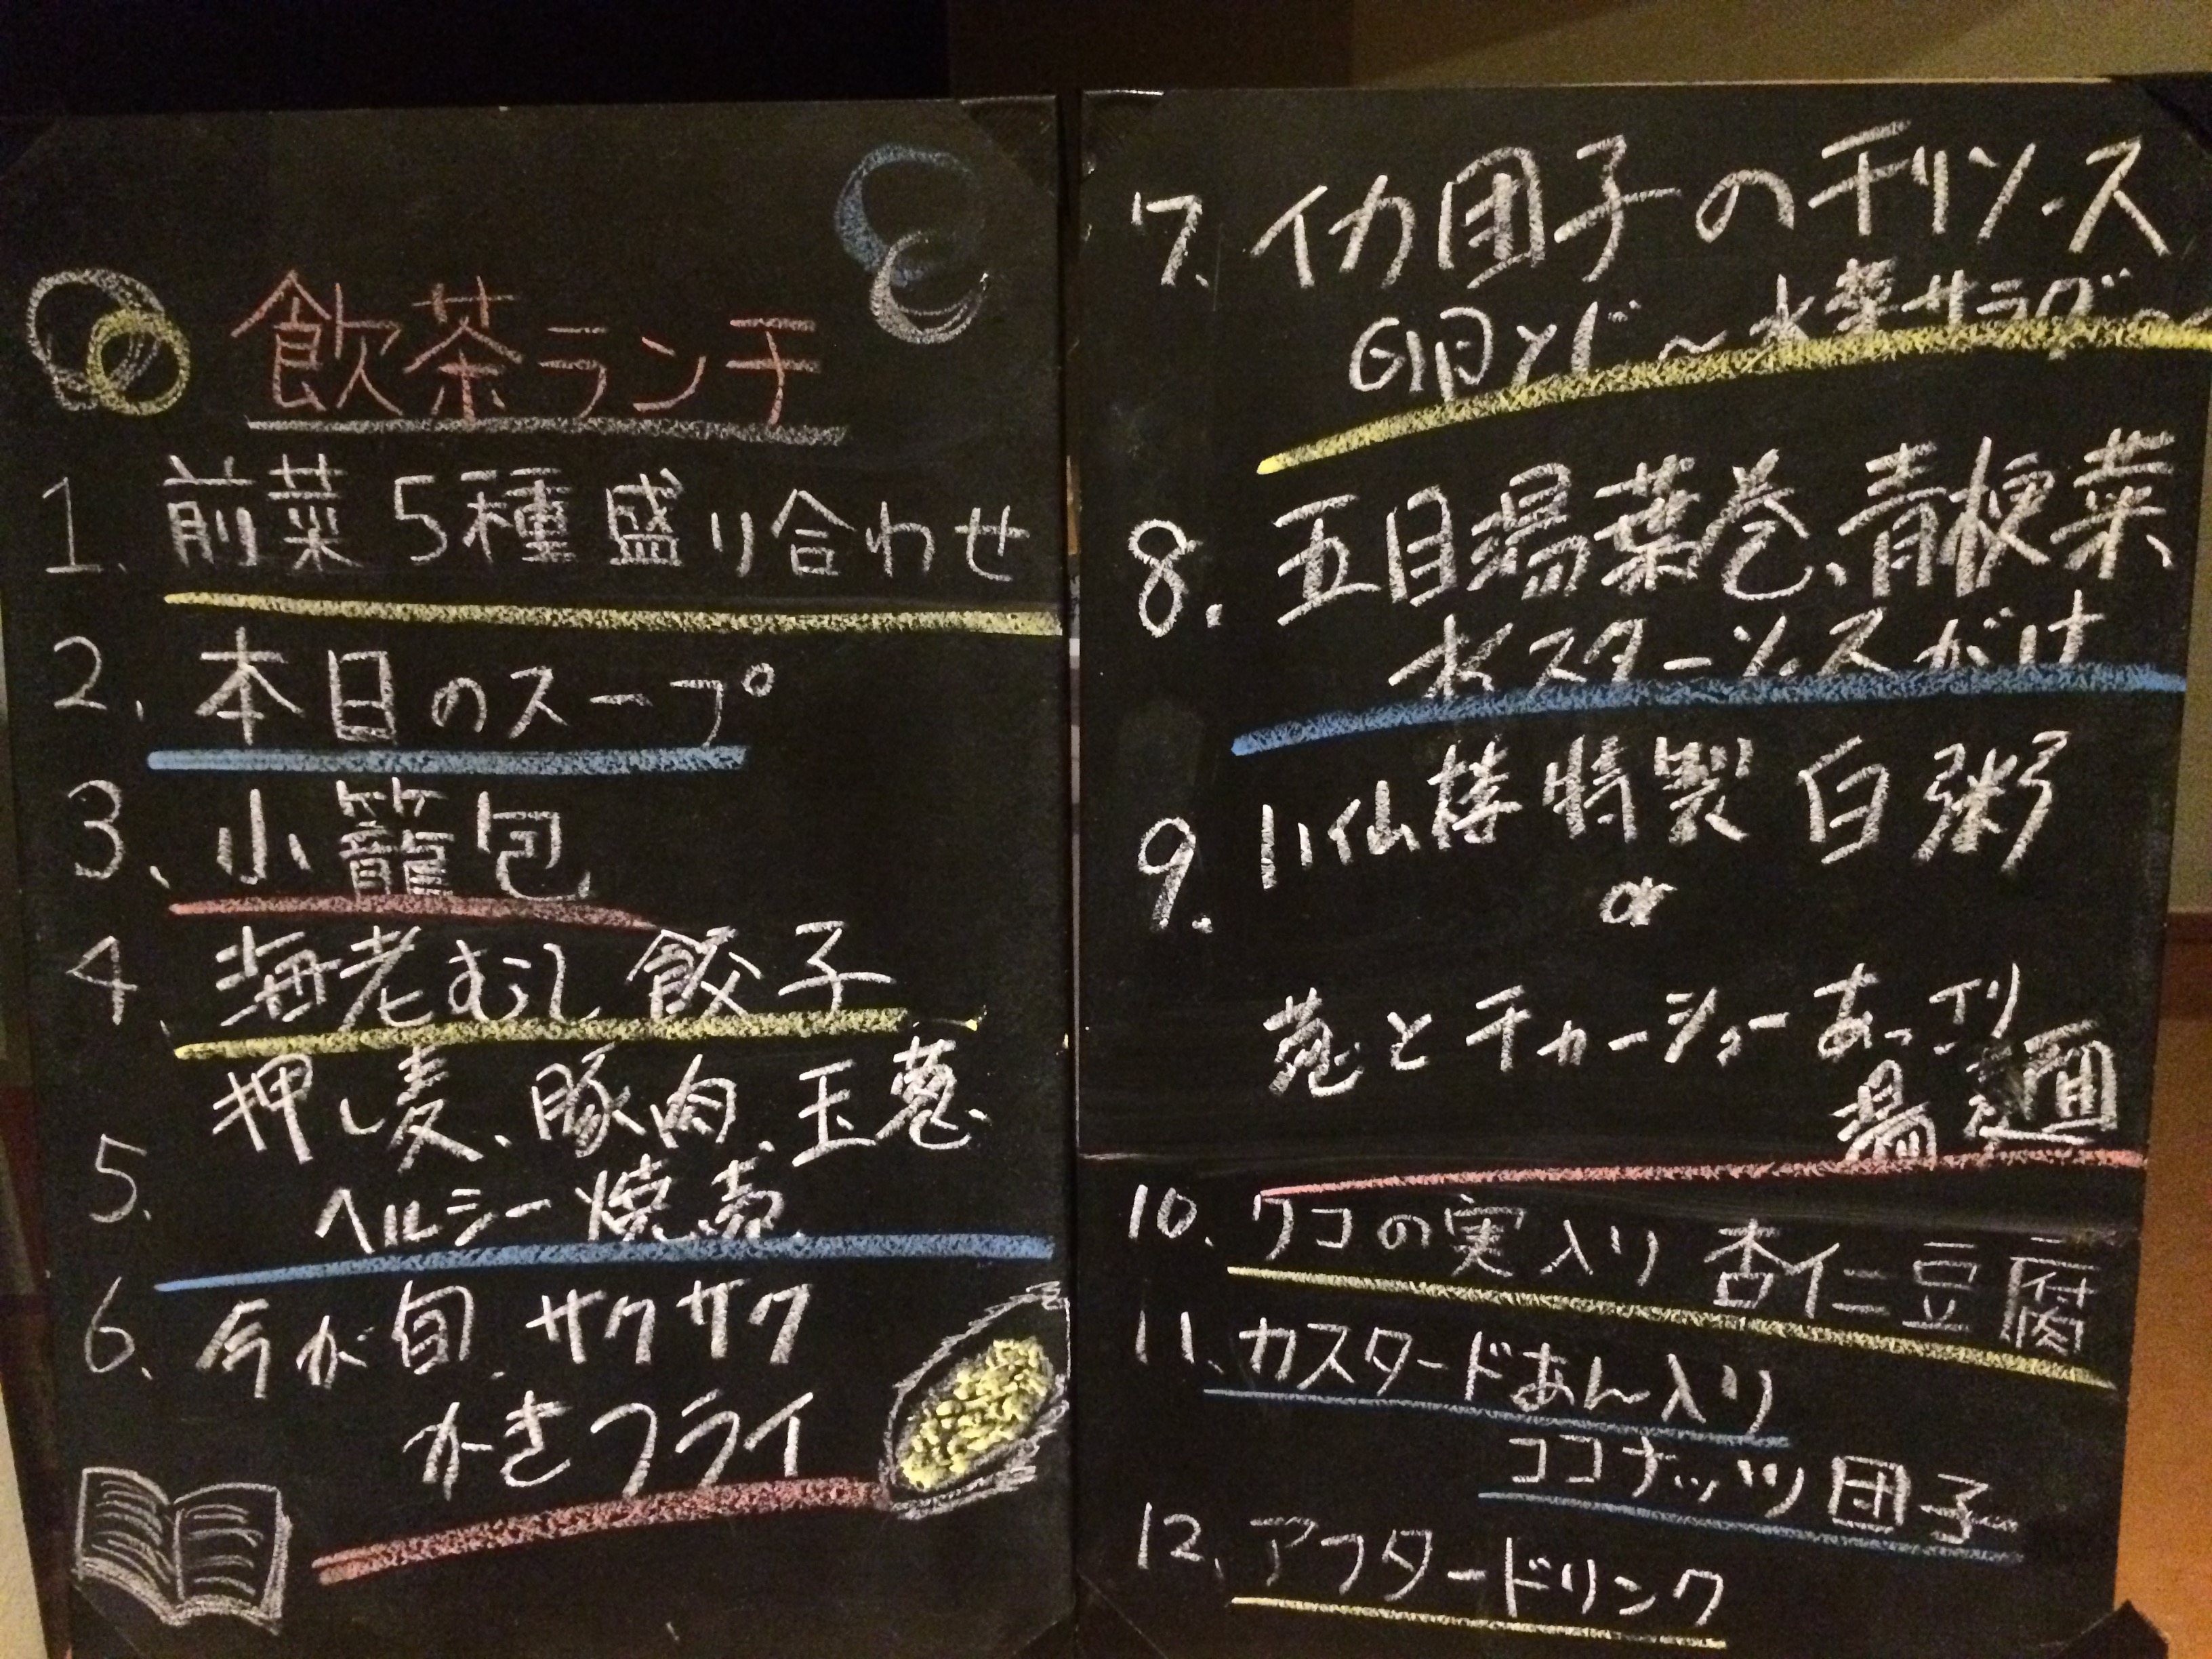 飲茶ランチ
1. 前菜 5種 盛り合わせ
2. 本日のスープ
3. 小籠包
4. 海老むし餃子
5. 押し麦、豚肉、玉葱
ヘルシー焼売
6. 今が旬、サクサク
かきフライ
7. イカ団子のチリソース
卵とじ〜水菜サラダ〜
8. 五目湯葉巻、青梗菜
オイスターソースがけ
9. 川仙楼特製 白粥
or
葱とチャーシューあっさり
湯麺
10. クコの実入り 杏仁豆腐
11. カスタードあん入り
ココナッツ団子
12. アフタードリンク